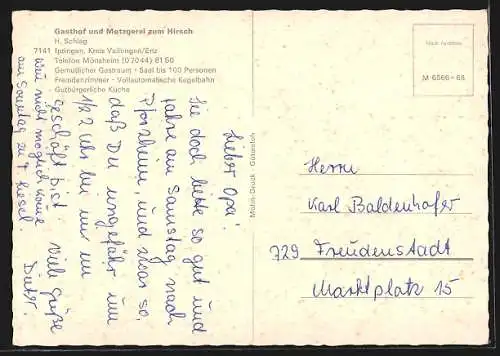 Gasthof und Metzgerei zum Hirsch
H. Schlag
7141 Iptingen, Kreis Vaihingen/Enz
Telefon Mönsheim (07044) 8160
Gemütlicher Gastraum · Saal bis 100 Personen
Fremdenzimmer · Vollautomatische Kegelbahn
Gutbürgerliche Küche
M 6566-68
Lieber Opa!
Sei doch bitte so gut und
fahre am Samstag nach
Pforzheim und zwar so,
daß Du ungefähr um
1/2 Uhr bei mir im
Geschäft bist. Viele Grüße
Dieter.
Mir nicht möglich
am Sonntag zu
Herrn
Karl Baldenhofer
729 Freudenstadt
Marktplatz 15